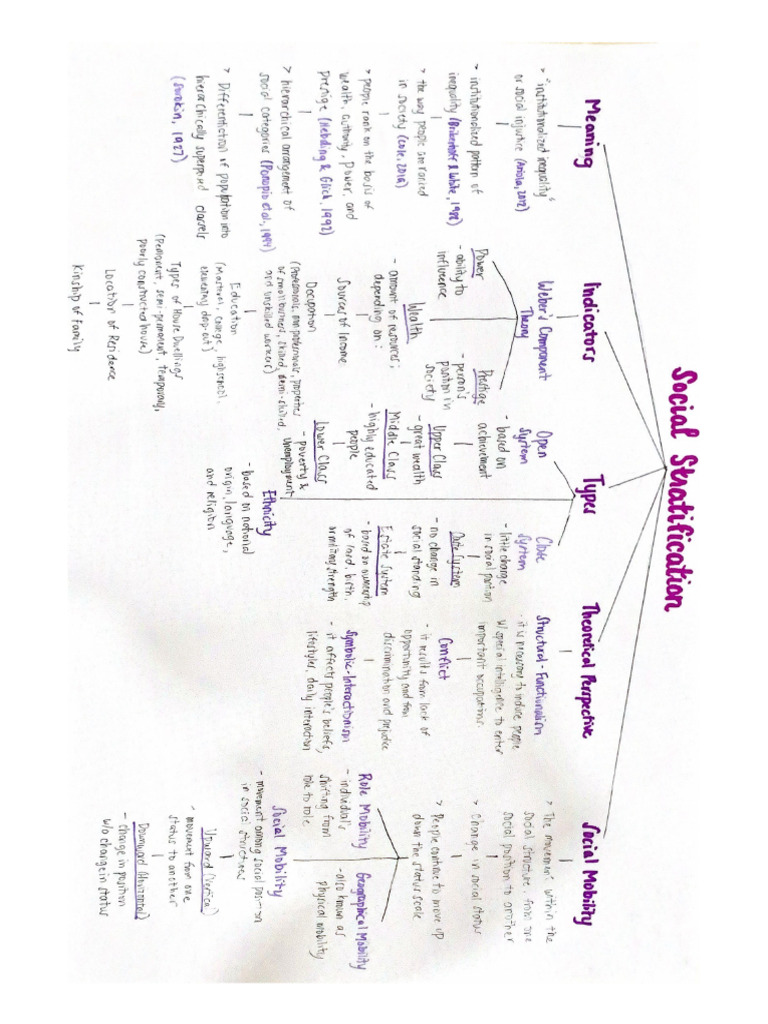 Social Stratification
Meaning
> "institutionalized inequality"
or social injustice (Ariola, 2012)
> institutionalized pattern of
inequality (Brinkerhoff & White, 1988)
> the way people are ranked
in society (Cole, 2019)
> people rank on the basis of
wealth, authority, power, and
prestige (Hebding & Glick, 1992)
> hierarchical arrangement of
social categories (Panopio et al., 1994)
> Differentiation of population into
hierarchically superposed classes
(Sorokin, 1927)
Indicators
Weber's Component
Theory
Power
- ability to
influence
Prestige
- person's
position in
society
Wealth
- amount of resources;
depending on:
Sources of Income
Occupation
(Professionals, non professionals, properties
of small business, skilled, semi-skilled,
and unskilled workers)
Education
(Masteral, college, highschool,
elementary drop-out)
Types of House Dwellings
(Permanent, semi-permanent, temporary,
poorly constructed house)
Location of Residence
Kinship of Family
Types
Open
System
- based on
achievement
Upper Class
- great wealth
Middle Class
- highly educated
people
Lower Class
- poverty &
unemployment
Close
System
- little change
in social position
Caste System
- no change in
social standing
Estate System
- based on ownership
of land, birth,
or military strength
Ethnicity
- based on national
origin, language,
and religion
Theoretical Perspective
Structural-Functionalism
- it is necessary to induce people
w/ special intelligence to enter
important occupations.
Conflict
- it results from lack of
opportunity and from
discrimination and prejudice
Symbolic-Interactionism
- it affects people's beliefs,
lifestyles, daily interaction
Social Mobility
> The movement within the
social structure, from one
social position to another
> change in social status
> People continue to move up
down the status scale
Role Mobility
- individual's
shifting from
role to role.
Geographical Mobility
- also known as
physical mobility
Social Mobility
- movement among social position
in social structures
Upward (Vertical)
- movement from one
status to another
Downward (Horizontal)
- change in position
w/o change in status